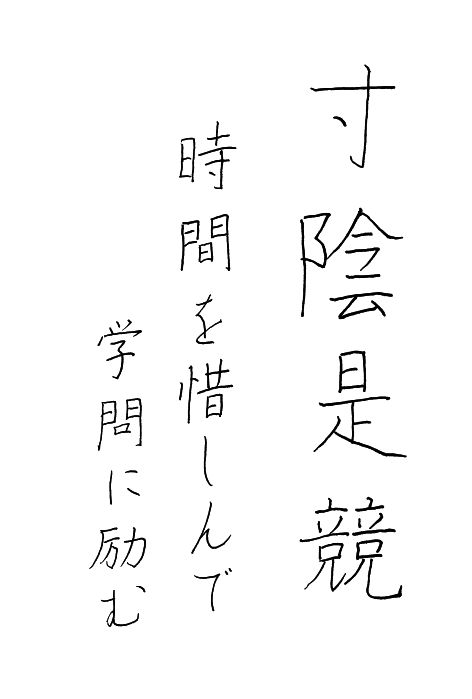 寸陰是競
時間を惜しんで
学問に励む